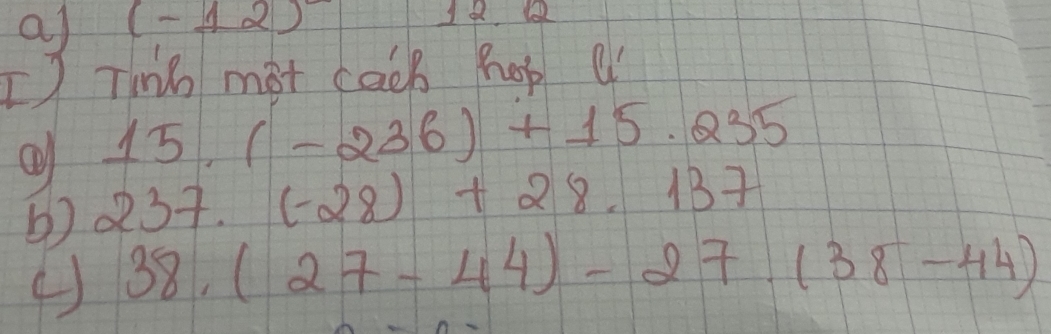 a) (-12) 12.12
I) Tính một cách hợp lí
a) 15.(-236) + 15.235
b) 237.(-28) + 28.137
c) 38.(27-44) - 27.(38-44)